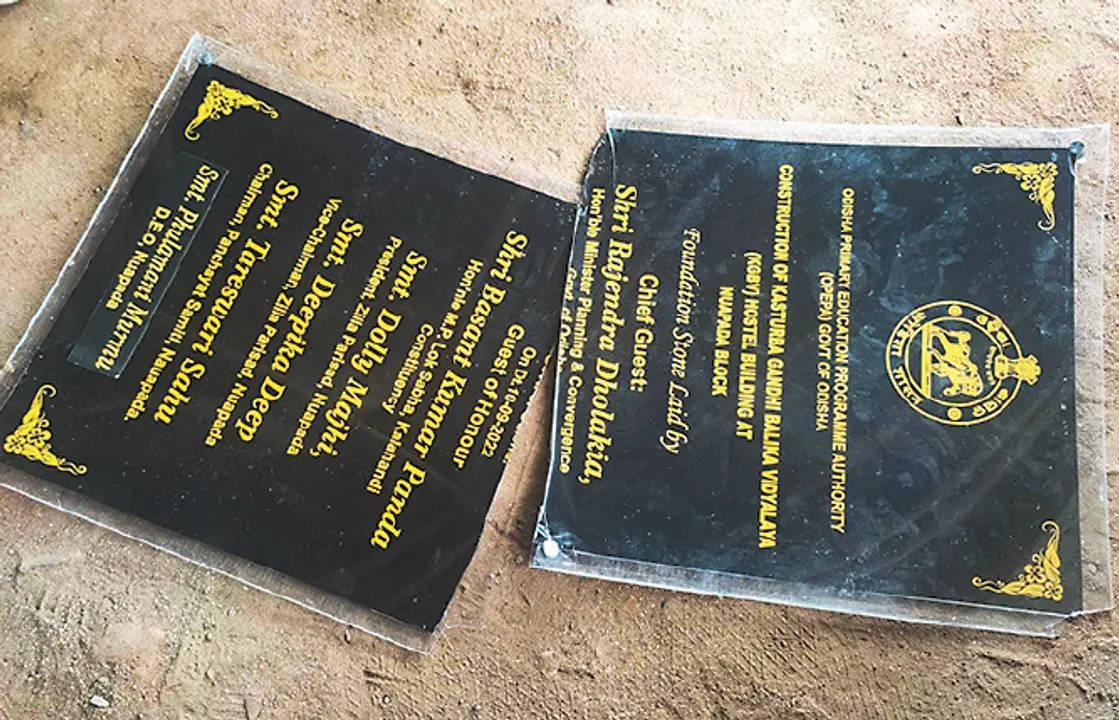 ODISHA PRIMARY EDUCATION PROGRAMME AUTHORITY
(OPEPA) GOVT OF ODISHA
CONSTRUCTION OF KASTURBA GANDHI BALIKA VIDYALAYA
(KGBV) HOSTEL BUILDING AT
NUAPADA BLOCK
Foundation Stone Laid by
Chief Guest:
Shri Rajendra Dholakia,
Hon'ble Minister Planning & Convergence
Govt of
On Dt. 16-09-2022
Guest of Honour
Shri Basant Kumar Panda
Hon'ble M.P Lok Sabha, Kalahandi
Constituency
Smt. Dolly Majhi,
President, Zilla Parisad, Nuapada
Smt. Deepika Deep
Vice-Chairman, Zilla Parisad, Nuapada
Smt. Tareswari Sahu
Chairman, Panchayat Samiti, Nuapada.
Smt. Philamani Murmu
D.E.O, Nuapada